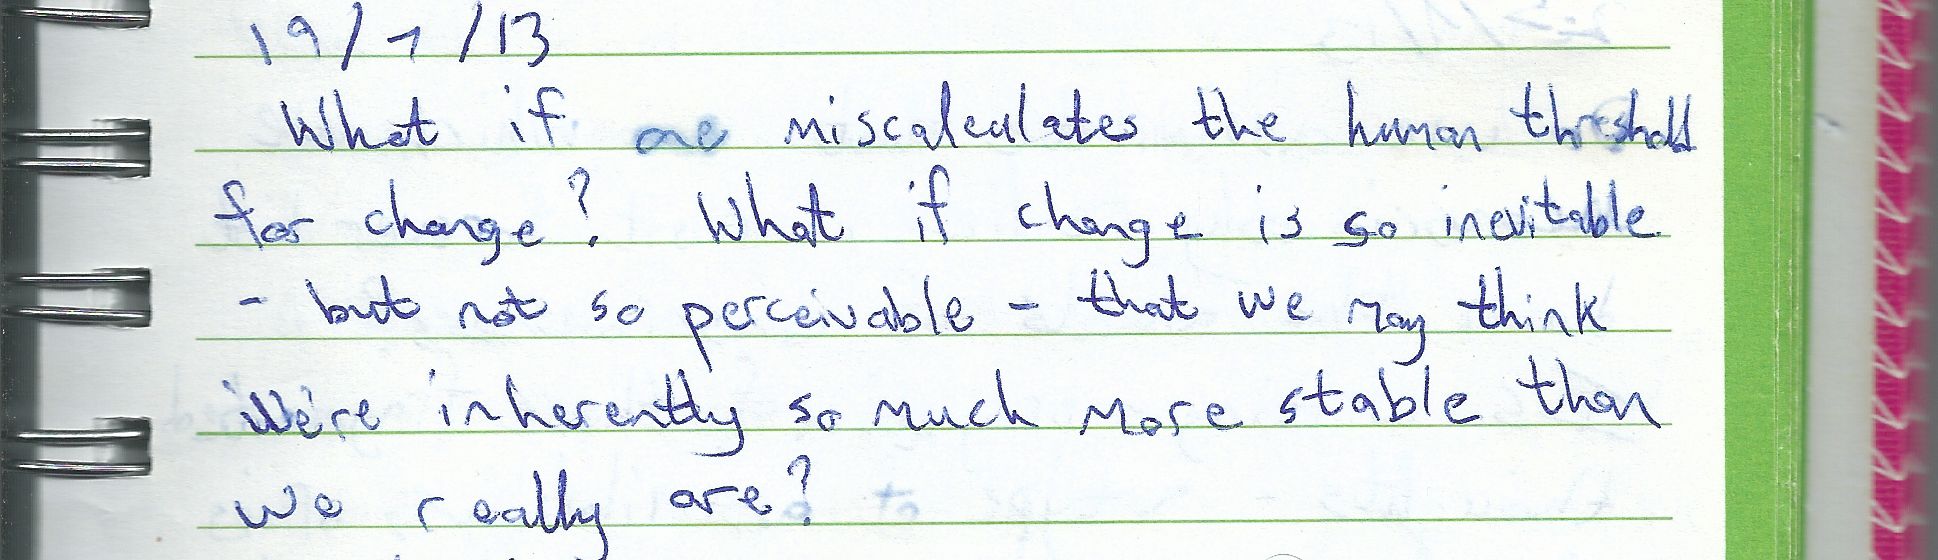 19/1/13
What if one miscalculates the human threshold
for change? What if change is so inevitable
- but not so perceivable - that we may think
we're inherently so much more stable than
we really are?